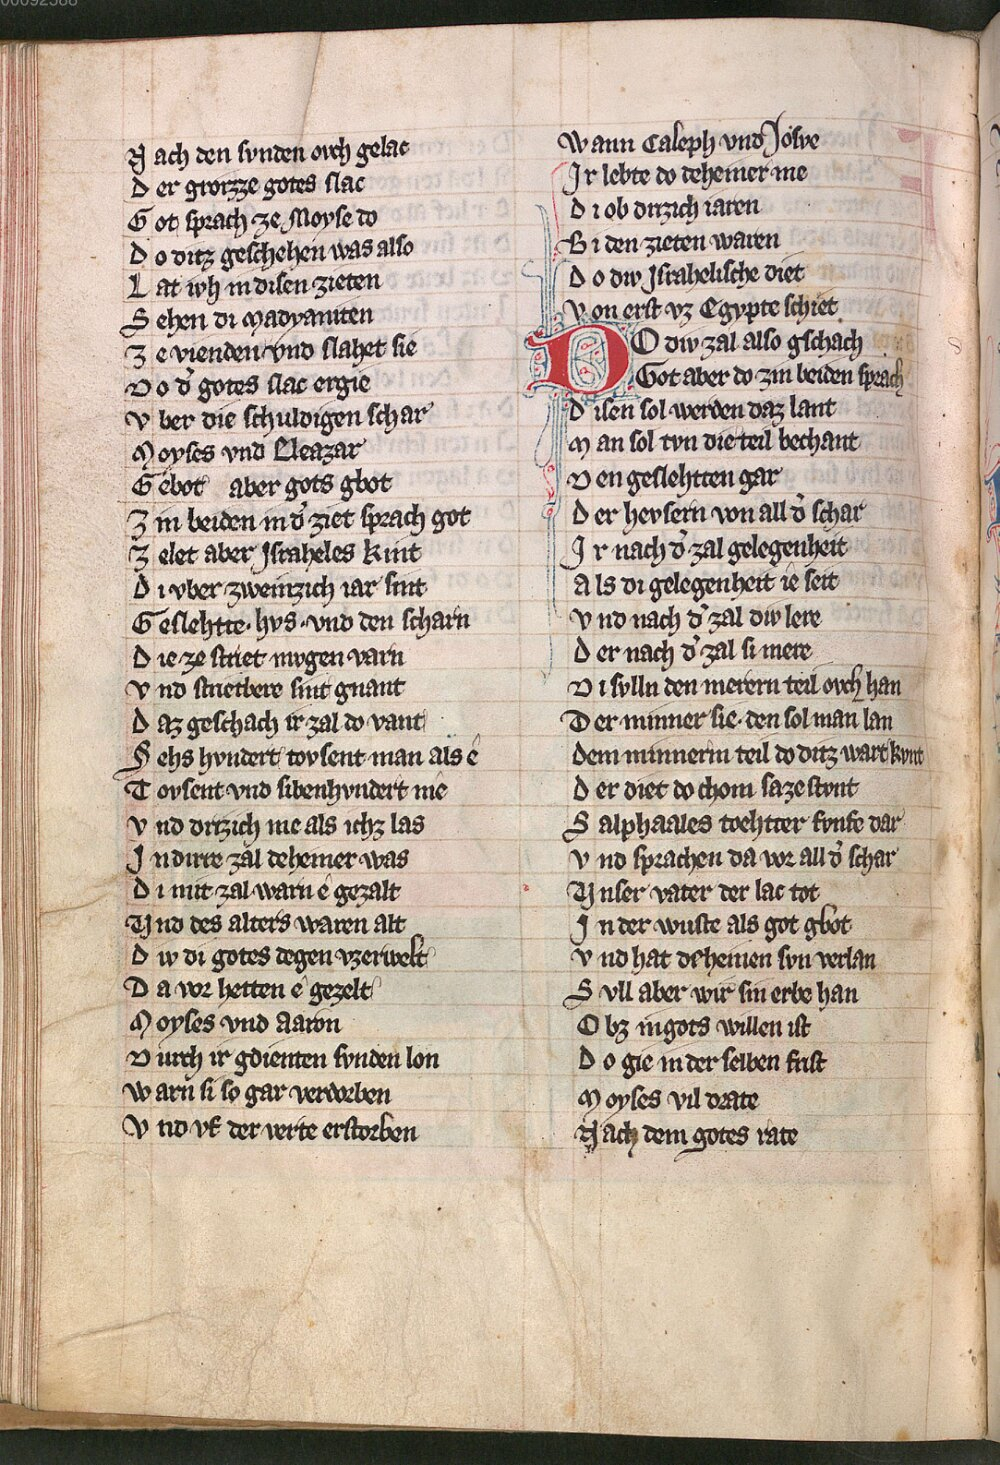 00092588
Nach den synden ovch gelac
Der grozze gotes slac
Got sprach ze Moyse do
Do ditz geschehen was also
Lat iwh in disen zieten
Sehen di Madyaniten
Ze vienden vnd slahet sie
Do d' gotes slac ergie
Vber die schuldigen schar
Moyses vnd Eleazar
Gebot aber gots gbot
Zin beiden in d' ziet sprach got
Zelet aber Israheles kint
Di vber zweinzich iar sint
Geslehtte · hvs · vnd den scharn
Die ze striet mvgen varn
Vnd strietbere sint gnant
Daz geschach ir zal do vant
Sehs hvndert tovsent man als ê
Tovsent vnd sibenhvndert me
Vnd drizich me als ichz las
In dirre zal deheiner was
Di mit zal warn ê gezalt
Vnd des alters waren alt
Diw di gotes degen vzerwelt
Da vor hetten ê gezelt
Moyses vnd Aaron
Durch ir gdienten synden lon
Warn si so gar verdorben
Vnd vf der verte erstorben
Wann Caleph vnd Josve
Ir lebte do deheiner me
Di ob drizich iaren
Bi den zieten waren
Do diw Israhelische diet
Von erst vz Egypte schiet
DO diw zal also gschach
Got aber do zin beiden sprach
Disen sol werden daz lant
Man sol tvn die teil bechant
Den geslehtten gar
Der hevsern von all d' schar
Ir nach d' zal gelegenheit
Als di gelegenheit ie seit
Vnd nach d' zal diw lere
Der nach d' zal si mere
Di svlln den merern teil ovch han
Der minner sie · den sol man lan
Dem minnerm teil do ditz wart kvnt
Der diet do chom saze stvnt
Salphaales toehtter fvnfe dar
Vnd sprachen da vor all d' schar
Vnser vater der lac tot
In der wuste als got gbot
Vnd hat deheinen svn verlan
Svll aber wir sin erbe han
Obz in gots willen ist
Do gie in der selben frist
Moyses vil drate
Nach dem gotes rate